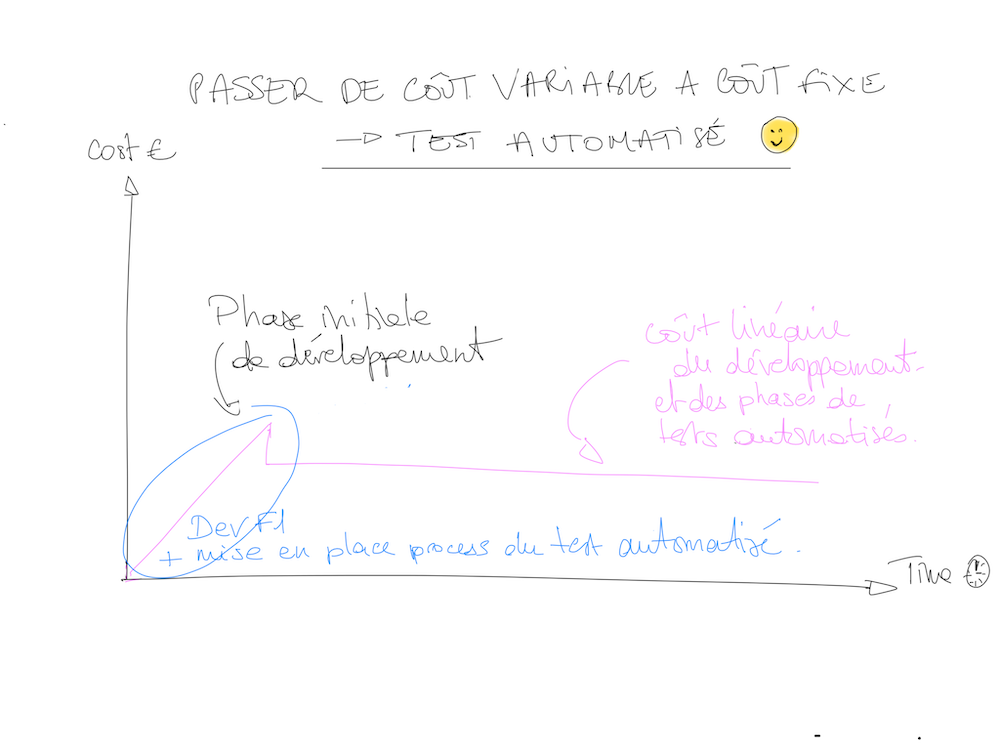 PASSER DE COÛT VARIABLE A COÛT FIXE
→ TEST AUTOMATISÉ
Cost €
Phase initiale
de développement
coût linéaire
du développement
et des phases de
tests automatisés.
Dev F1
+ mise en place process du test automatisé.
Time